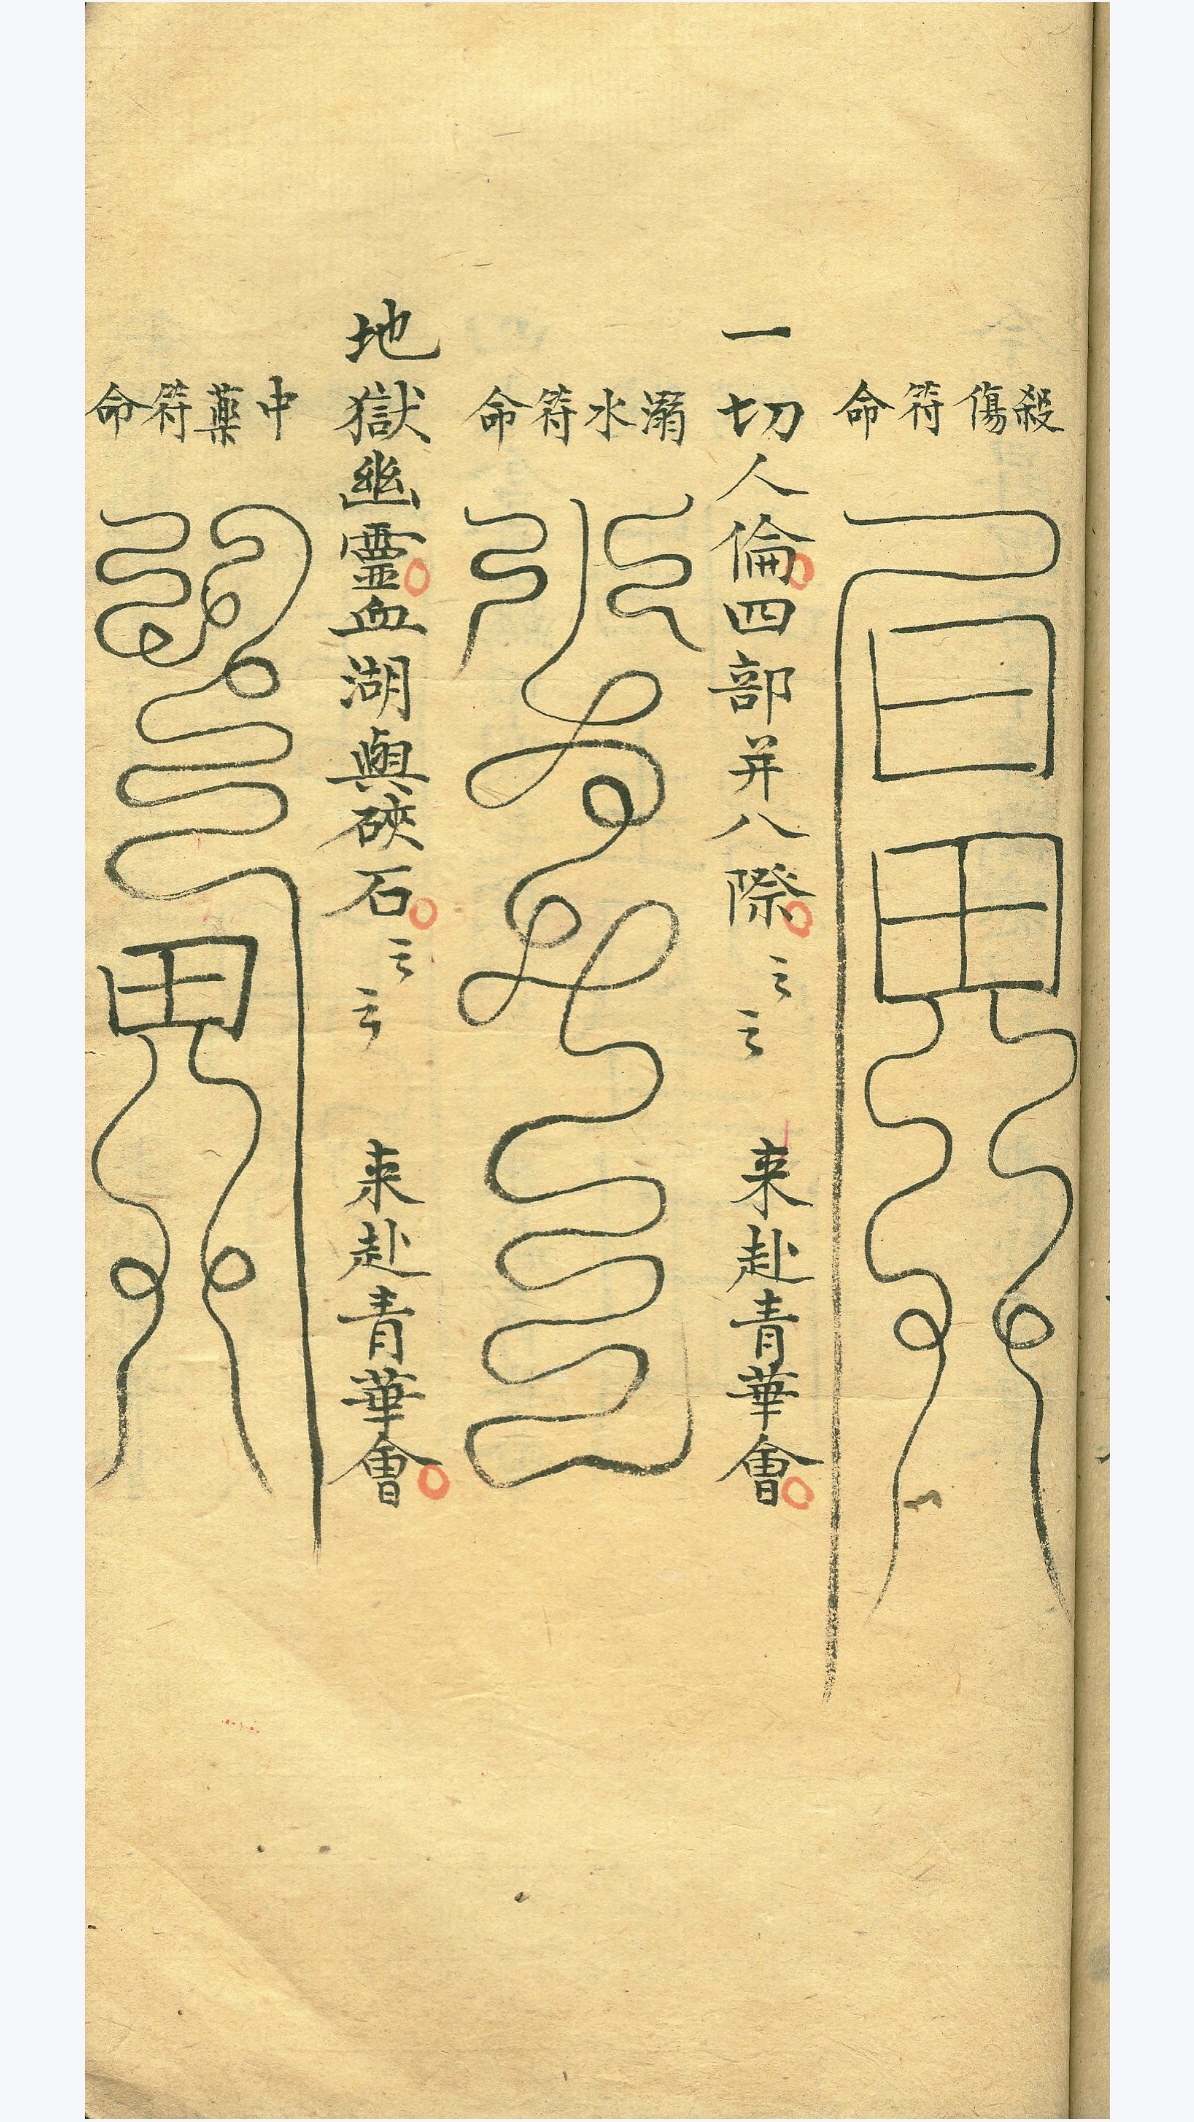 殺傷符命
一切人倫四部并八際云云 来赴青華會
溺水符命
地獄幽霊血湖與硤石云云 来赴青華會
中藥符命